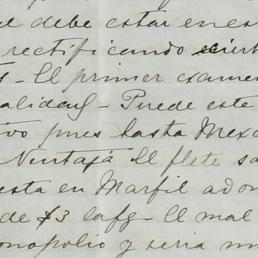 el debe estar en es
rectificando ciert
El primer exame
alidad - Puede este
ivo pues hasta Mexi
Ventaja El flete sa
esta en Marfil adon
de $3 la fg - El mal
onopolio y seria mu